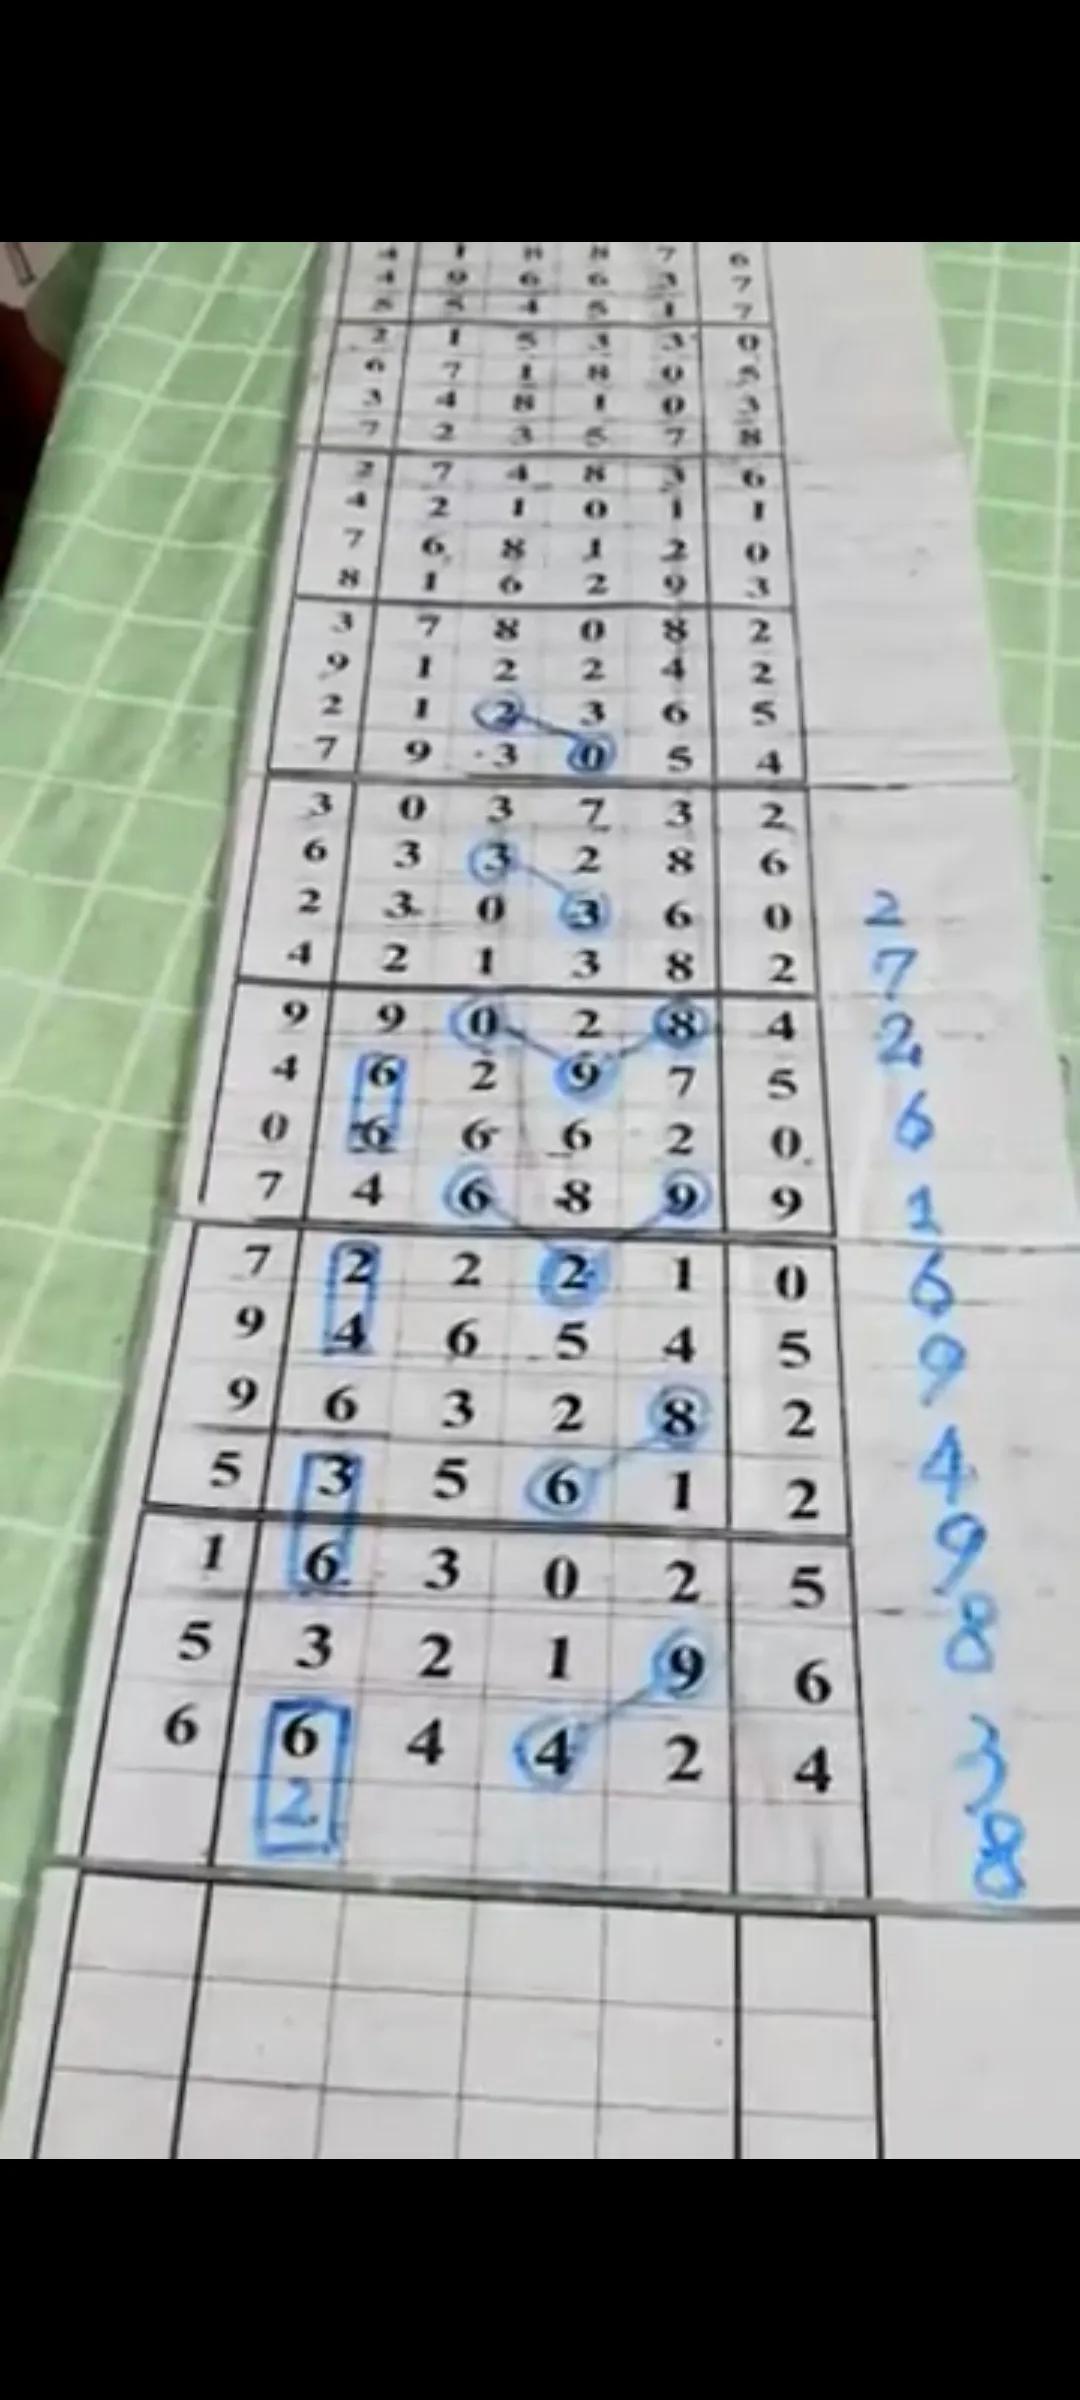 4 1 8 8 7 6
4 9 6 6 3 7
5 5 4 5 1 7
2 1 5 3 3 0
6 7 1 8 0 5
3 4 8 1 0 3
7 2 3 5 7 8
2 7 4 8 3 6
4 2 1 0 1 1
7 6 8 1 2 0
8 1 6 2 9 3
3 7 8 0 8 2
9 1 2 2 4 2
2 1 2 3 6 5
7 9 3 0 5 4
3 0 3 7 3 2
6 3 3 2 8 6
2 3 0 3 6 0 2
4 2 1 3 8 2 7
9 9 0 2 8 4 2
4 6 2 9 7 5
0 6 6 6 2 0 6
7 4 6 8 9 9 1
7 2 2 2 1 0 6
9 4 6 5 4 5 9
9 6 3 2 8 2
5 3 5 6 1 2 4
1 6 3 0 2 5 9
5 3 2 1 9 6 8
6 6 4 4 2 4 3
2 8